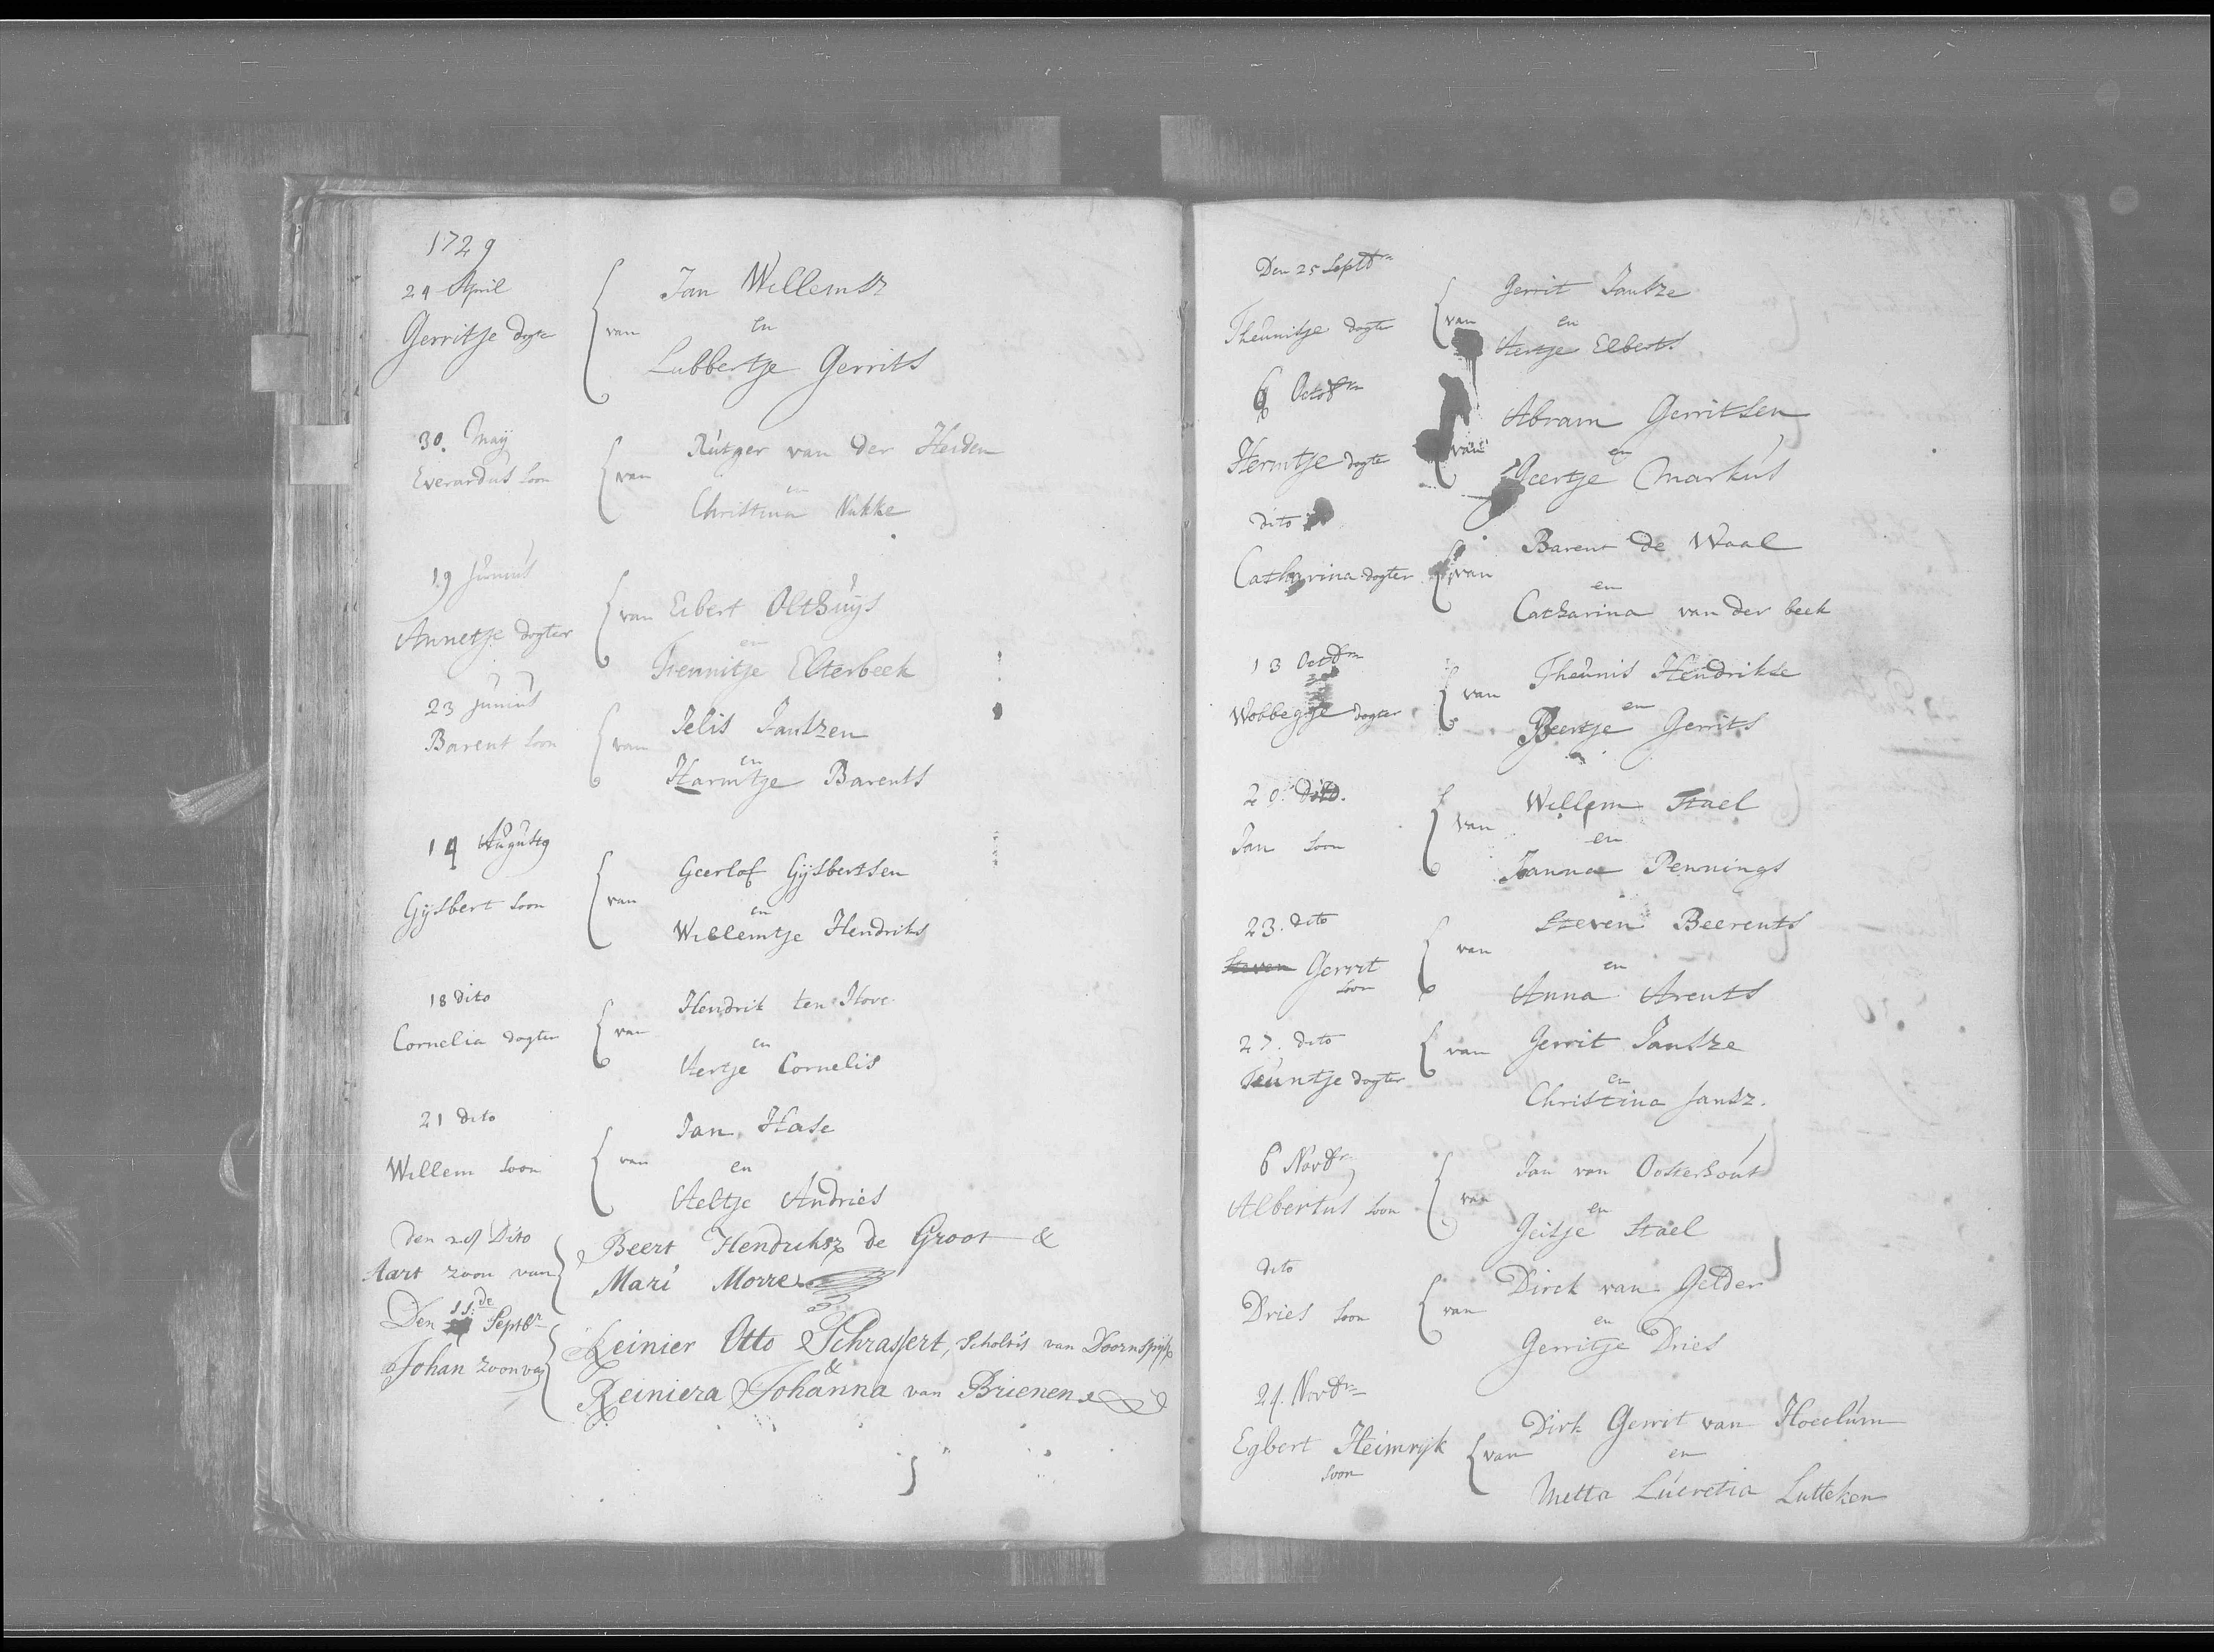 1729
24 April
Gerritje dogtr { van Jan Willemsz
en
Lubbertje Gerrits
30. May
Everardus soon { van Rutger van der Heiden
en
Christina Nukke
19 Junius
Annetje dogter { van Eibert Olthuys
en
Theunitje Elterbeek
23 Junius
Barent soon { van Jelis Jantzen
en
Harmtje Barents
14 Augusty
Gysbert soon { van Geerlof Gysbertsen
en
Willemtje Hendriks
18 dito
Cornelia dogter { van Hendrik ten Hove
en
Aertje Cornelis
21 dito
Willem soon { van Jan Hase
en
Aeltje Andries
den 28 Dito
Aart zoon van { Beert Hendriksz de Groot &
Mari Morre
Den 11de Septbr
Johan zoon van { Reinier Otto Schrassert, Scholtis van Doornspyk
&
Reiniera Johanna van Brienen
Den 25 Septbr
Theunitje dogter { van Gerrit Jansze
en
Aertje Elberts
6 Octobr
Hermtje dogter { van Abram Gerritsen
en
Geertje Markus
dito
Catharina dogter { van Barent de Waal
en
Catharina van der beek
13 Octbr
Wobbegje dogter { van Theunis Hendrikse
en
Beertje Gerrits
20. dito.
Jan soon { van Willem Stael
en
Janna Pennings
23. dito
Steven Gerrit
soon { van Steven Beerents
en
Anna Arents
27. dito
Teuntje dogter { van Gerrit Jansze
en
Christina Jansz.
6 Novbr
Albertus soon { van Jan van Oosterhout
en
Geitje Stael
dito
Dries soon { van Dirck van Gelder
en
Gerritje Dries
24. Novbr
Egbert Heimryk
soon { van Dirk Gerrit van Hoeclum
en
Metta Lucretia Lutteken